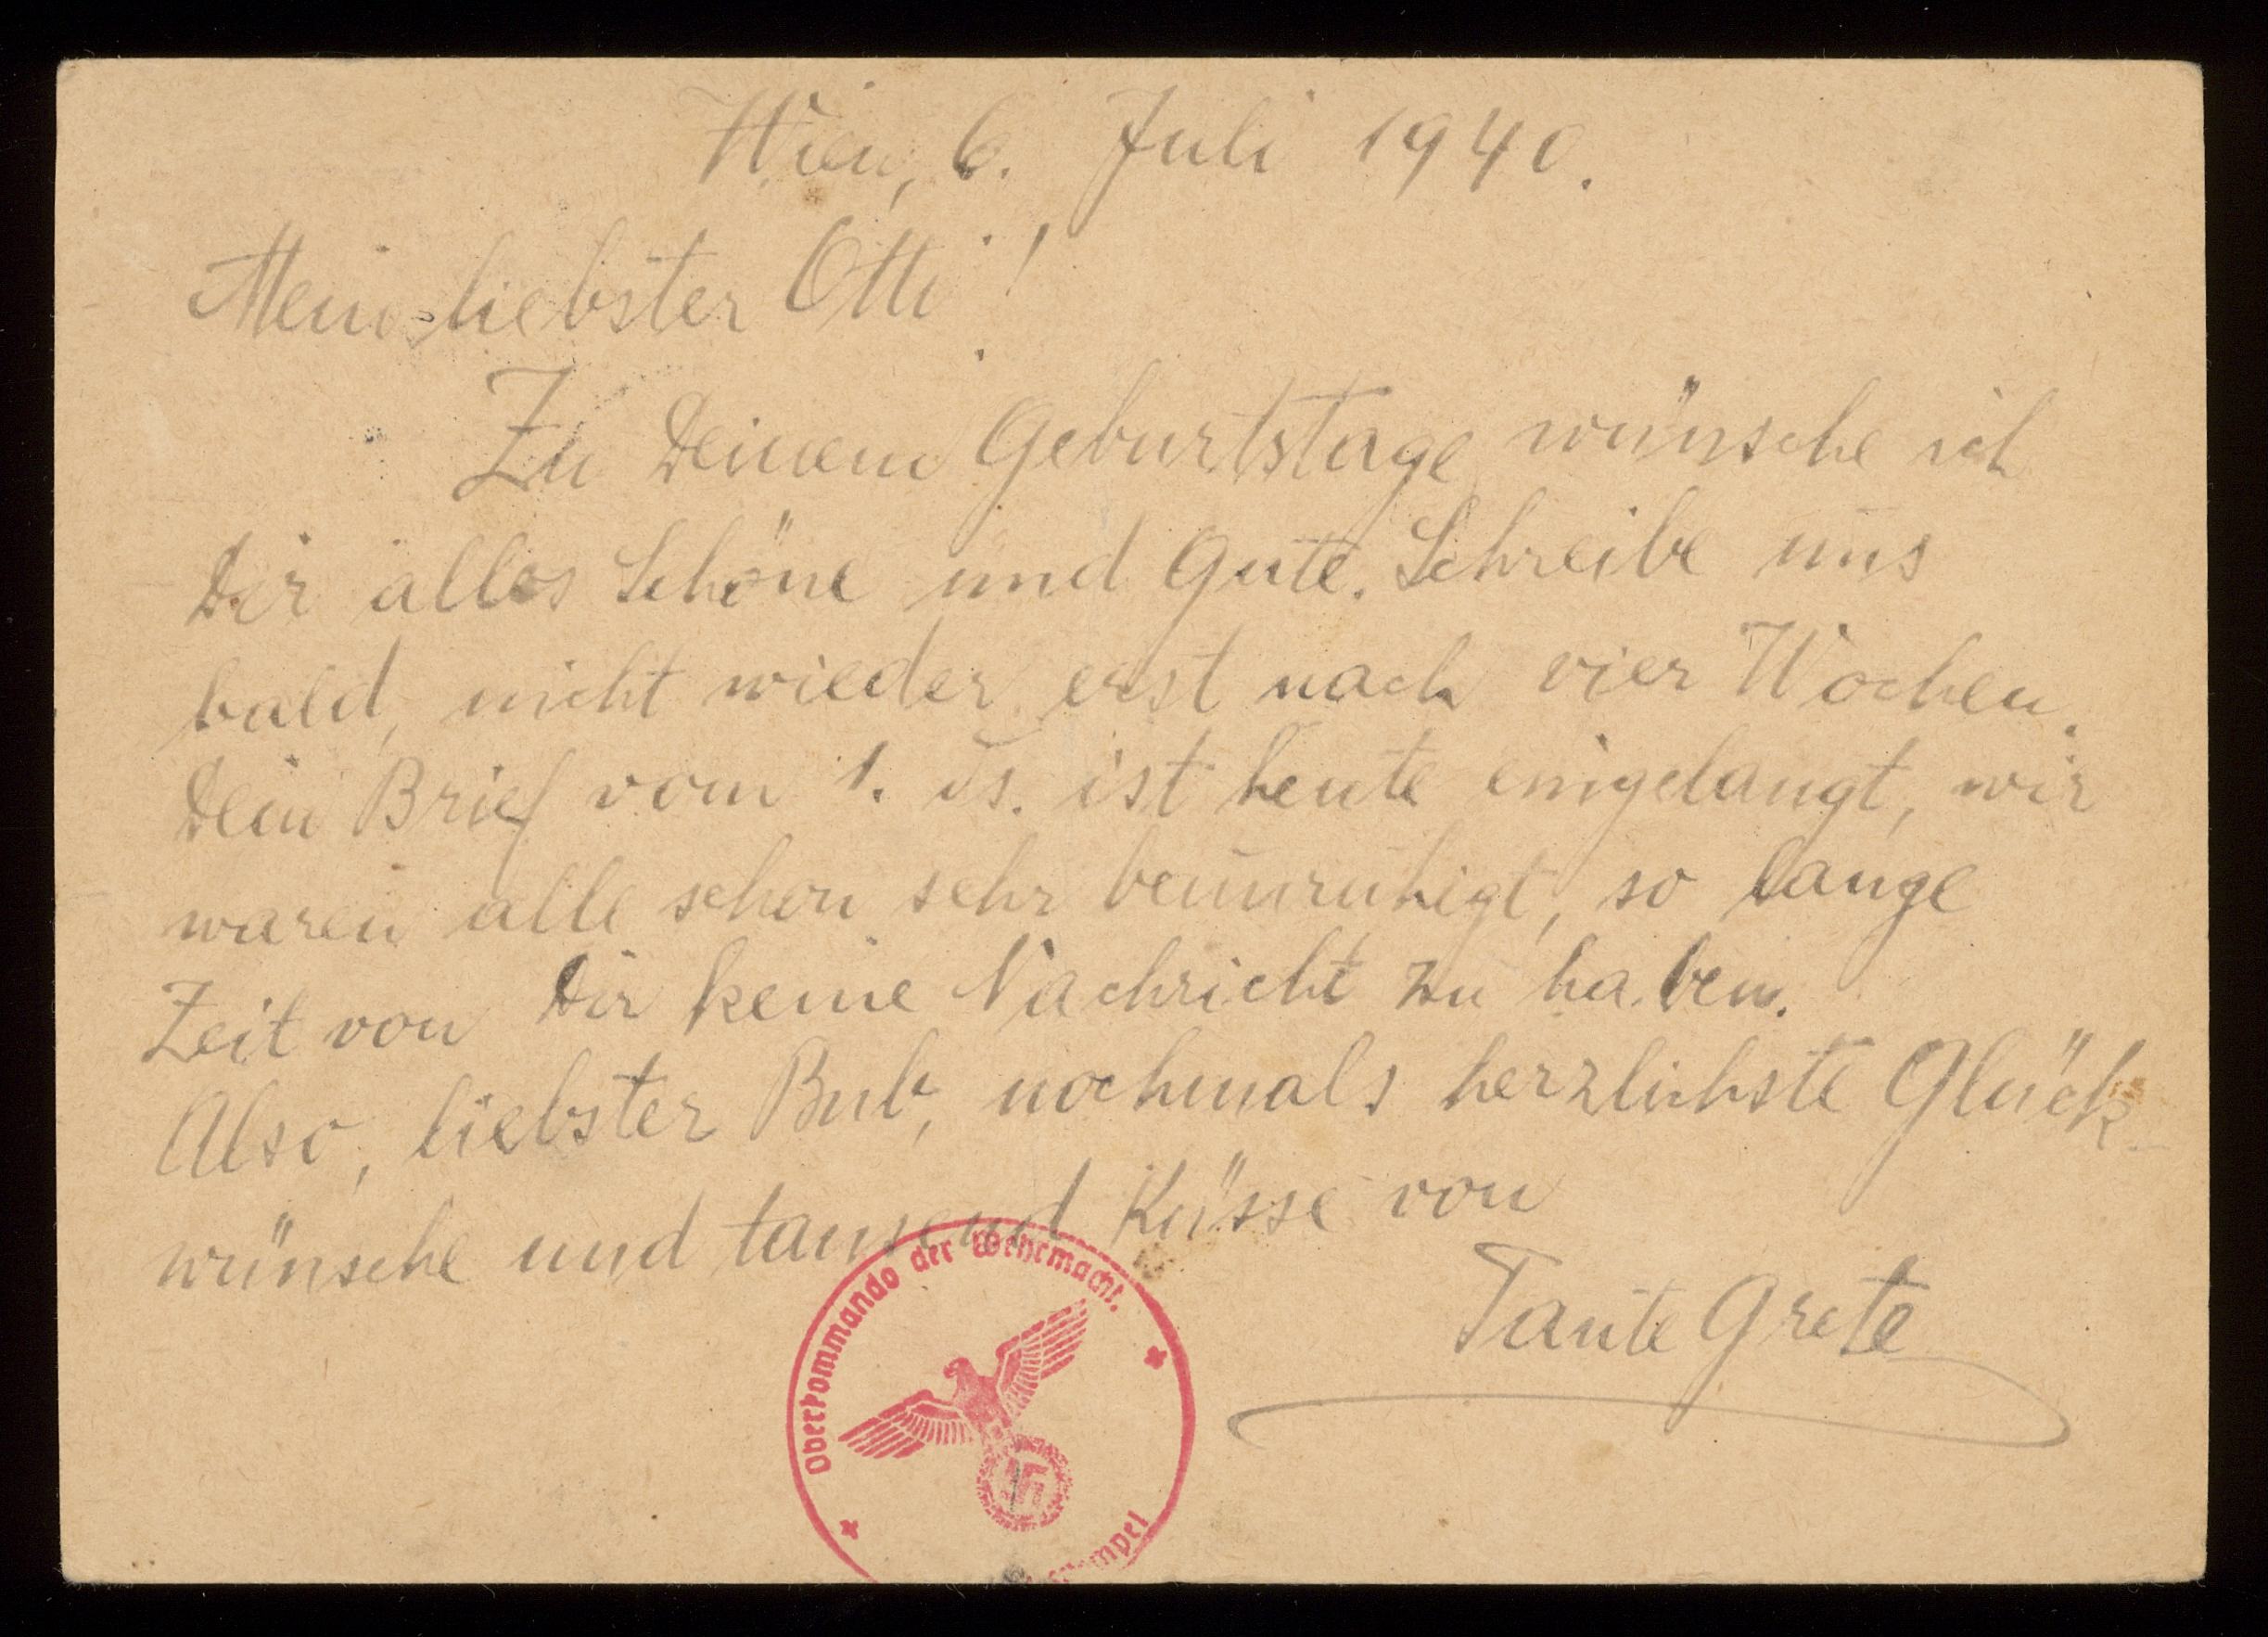 Wien, 6. Juli 1940.
Mein liebster Otti!
Zu Deinem Geburtstage wünsche ich
Dir alles Schöne und Gute. Schreibe uns
bald, nicht wieder erst nach vier Wochen.
Dein Brief vom 1. ds. ist heute eingelangt, wir
waren alle schon sehr beunruhigt, so lange
Zeit von Dir keine Nachricht zu haben.
Also, liebster Bub, nochmals herzlichste Glück-
wünsche und tausend Küsse von
Tante Grete
Oberkommando der Wehrmacht.